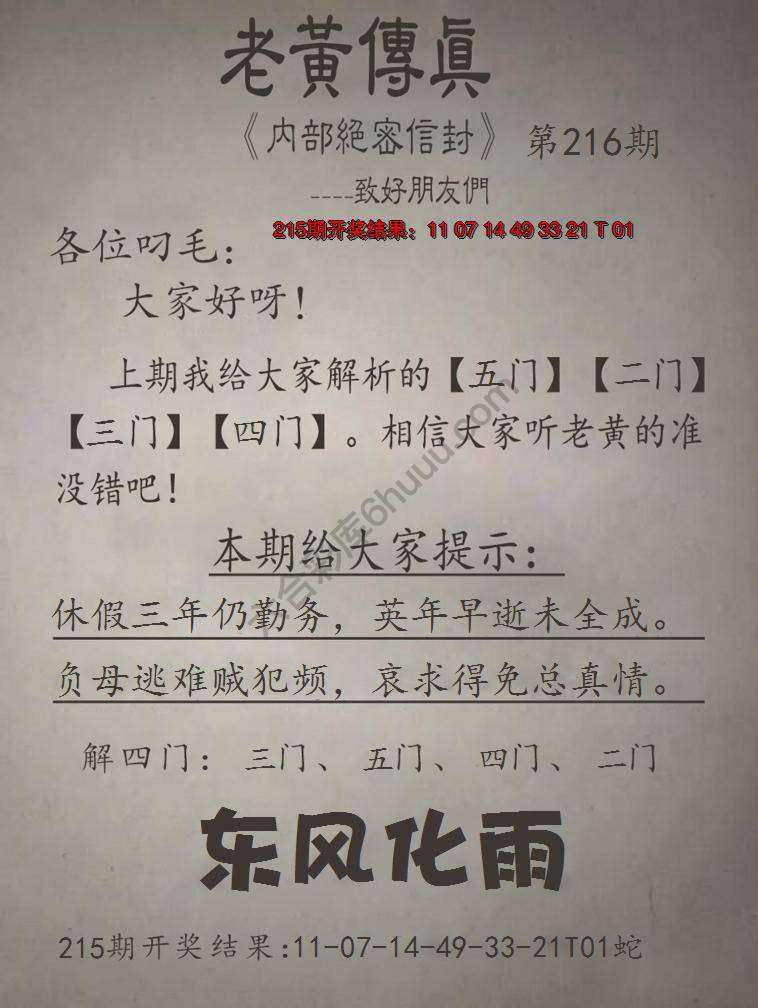 老黃傳眞
《内部絕密信封》 第216期
----致好朋友們
215期开奖结果：11 07 14 49 33 21 T 01
各位叼毛：
大家好呀！
上期我给大家解析的【五门】【二门】
【三门】【四门】。相信大家听老黄的准
没错吧！
六合彩库6huuu.com
本期给大家提示：
休假三年仍勤务，英年早逝未全成。
负母逃难贼犯频，哀求得免总真情。
解四门：三门、五门、四门、二门
东风化雨
215期开奖结果:11-07-14-49-33-21T01蛇